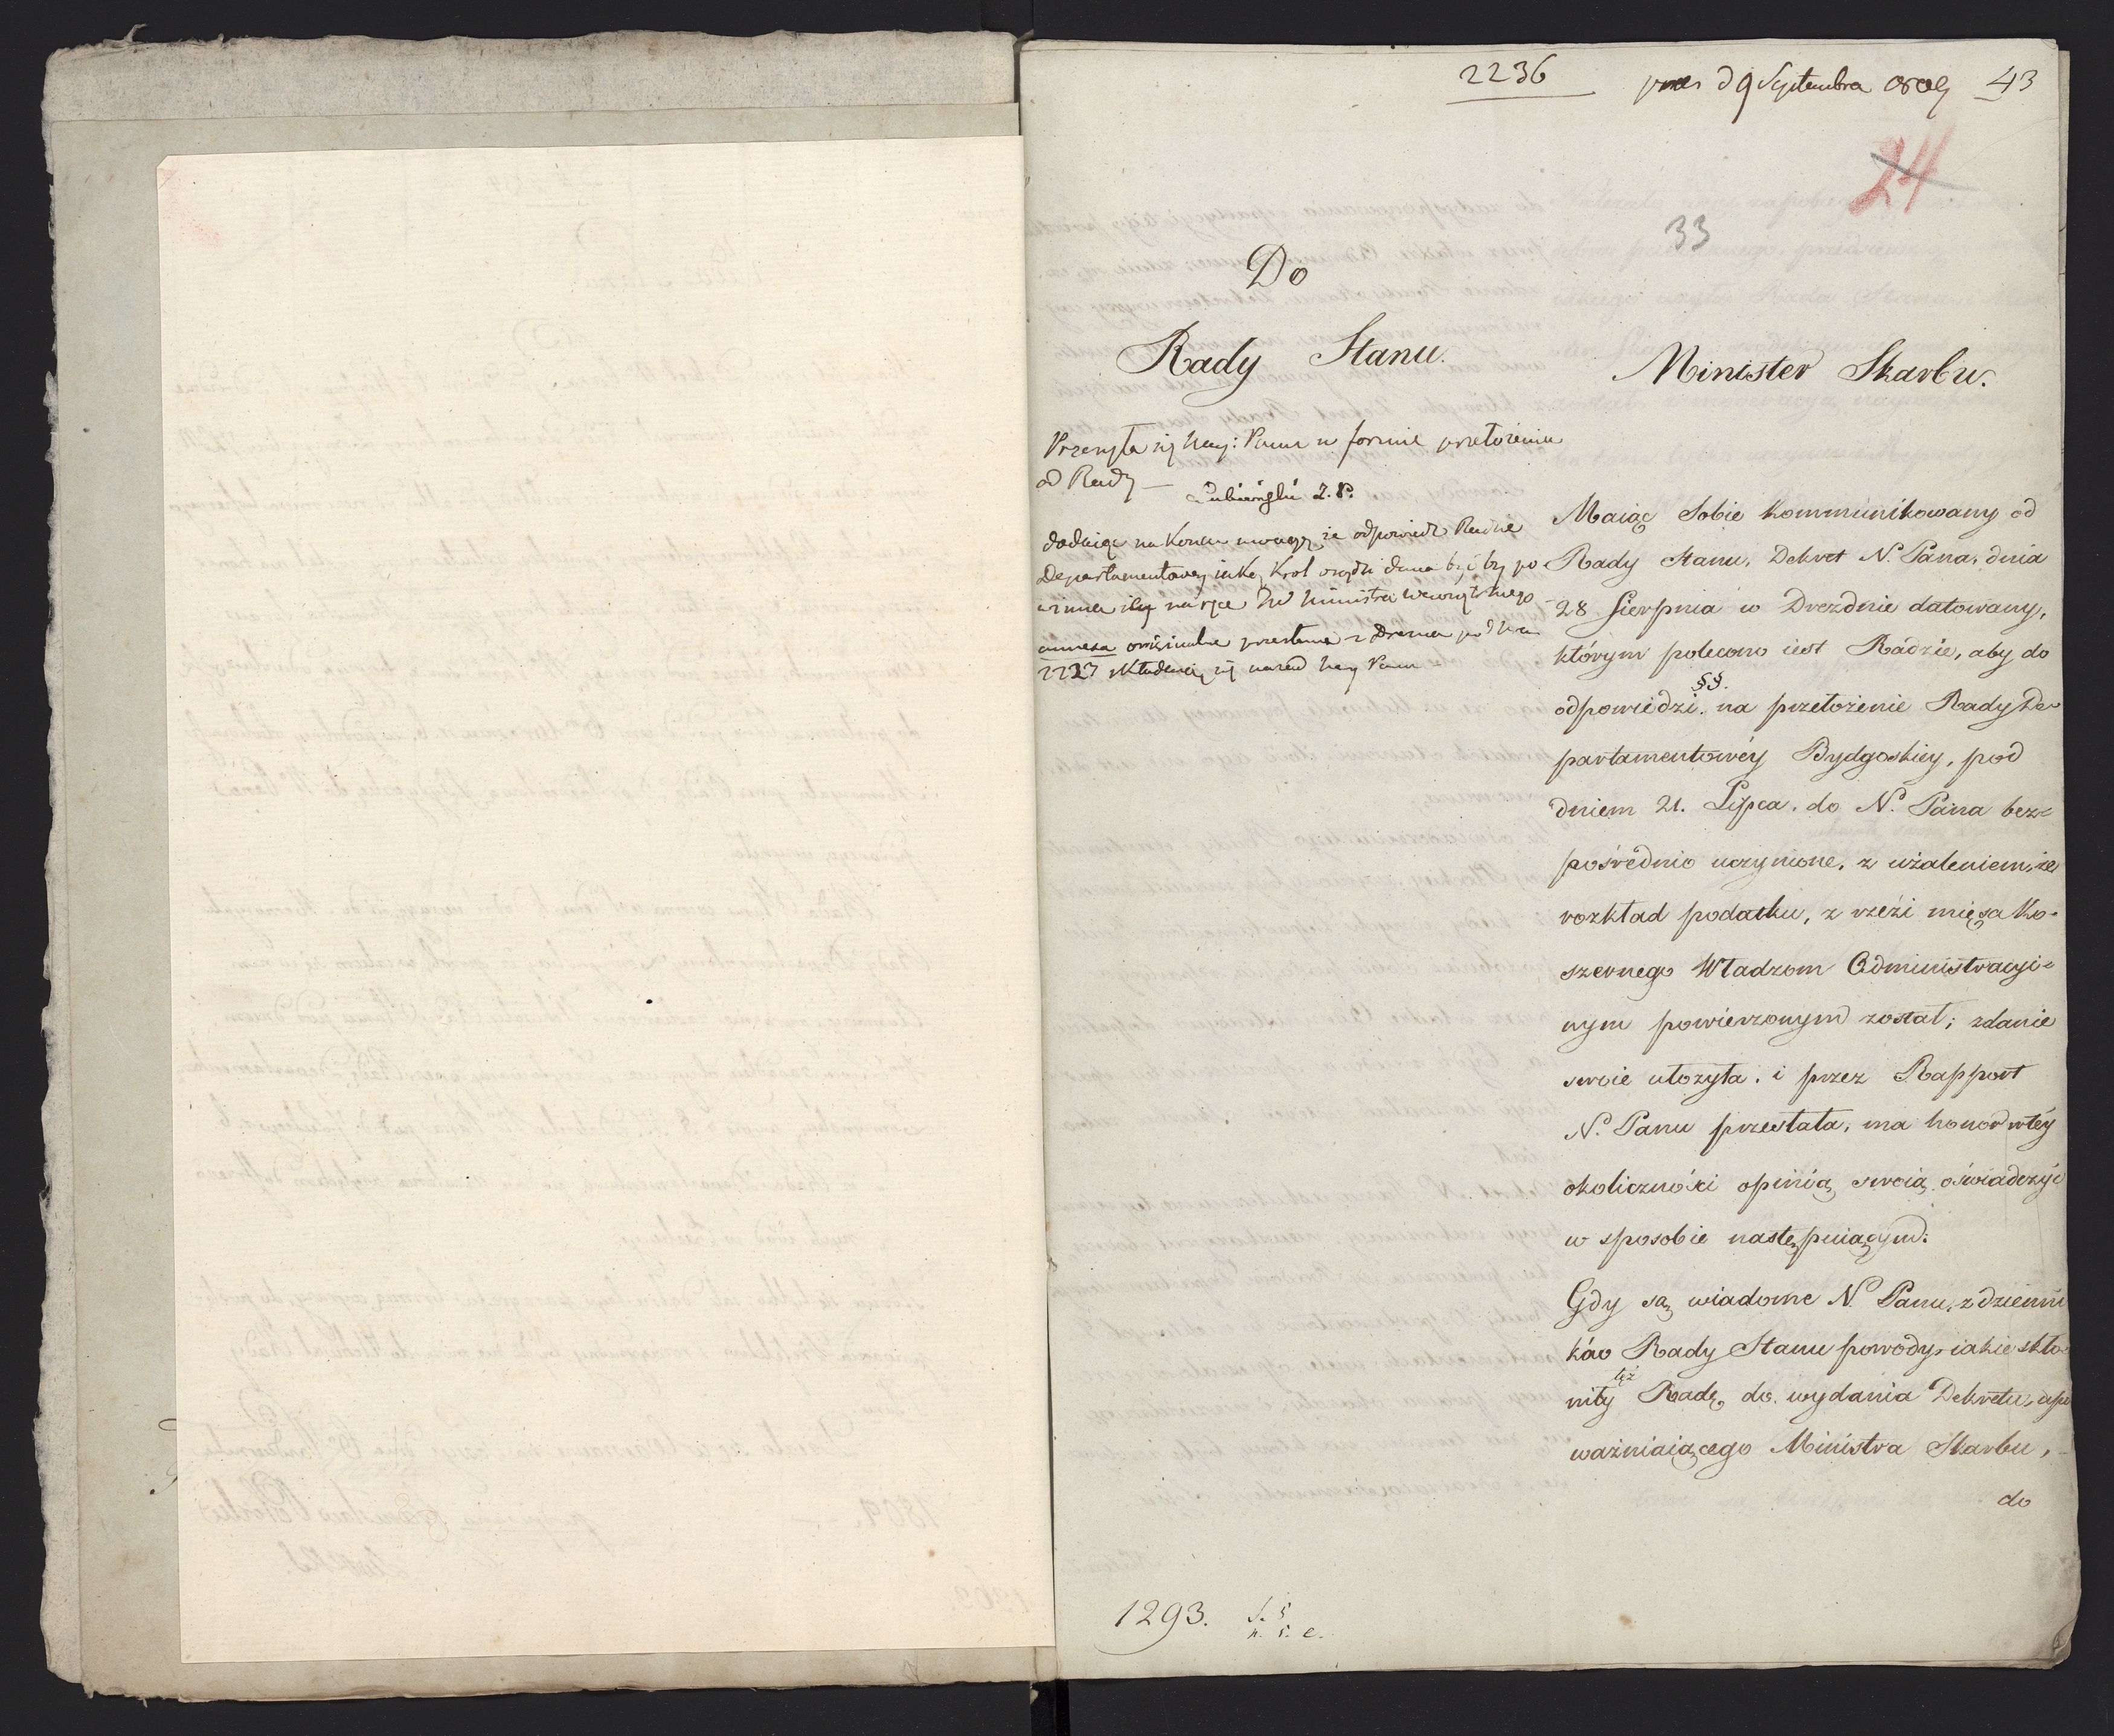 2236
43
24
33
Do
Rady Stanu.
Minister Skarbu.
Przesyła się Nay: Panu w formie przełożenia
od Rady —
Łubieński
dodaiąc na końcu uwagę, że odpowiedź Radzie
Departamentowey iaką Krol osądzi dana być by po
winna na ręce Ministra Wewnętrznego
annexa originalne przesłane z Drezna pod
2237 składaią się Nay Panu
Maiąc Sobie kommunikowany od
Rady Stanu, Dekret N. Pana, dnia
28 Sierpnia w Dreznie datowany,
którym polecono iest Radzie, aby do
odpowiedzi §§. na przełożenie Rady De-
partamentowéy Bydgoskiey, pod
dniem 21. Lipca. do N. Pana bez=
pośrednio uczynione, z użaleniem, że
rozkład podatku, z rzezi mięsa ko-
szernego Władzom Administracyi=
nym powierzonym został; zdanie
swoie ułożyła. i przez Rapport
N. Panu przesłała, ma honor w téy
okoliczności opinią swoią oświadczyć
w sposobie następuiącym:
Gdy są wiadome N. Panu, z dzienni
ków Rady Stanu powody, iakie skło-
niły też Radę do wydania Dekretu, upo
ważniaiącego Ministra Skarbu,
do
1293.